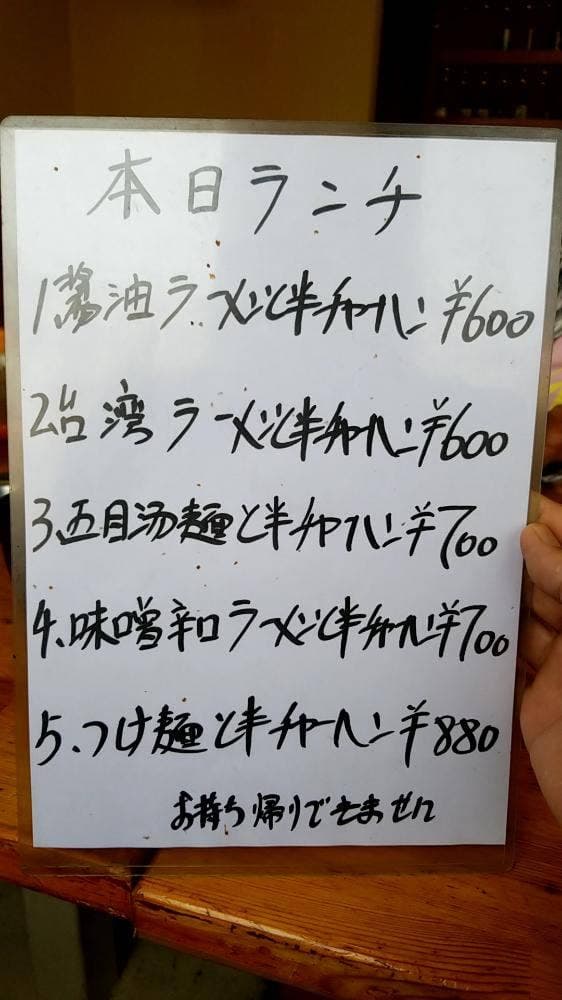 本日ランチ
1醤油ラーメンと半チャーハン ¥600
2台湾ラーメンと半チャーハン¥600
3.五目汤麺と半チャーハン¥700
4.味噌辛口ラーメンと半チャーハン¥700
5.つけ麺と半チャーハン¥880
お持ち帰りできません